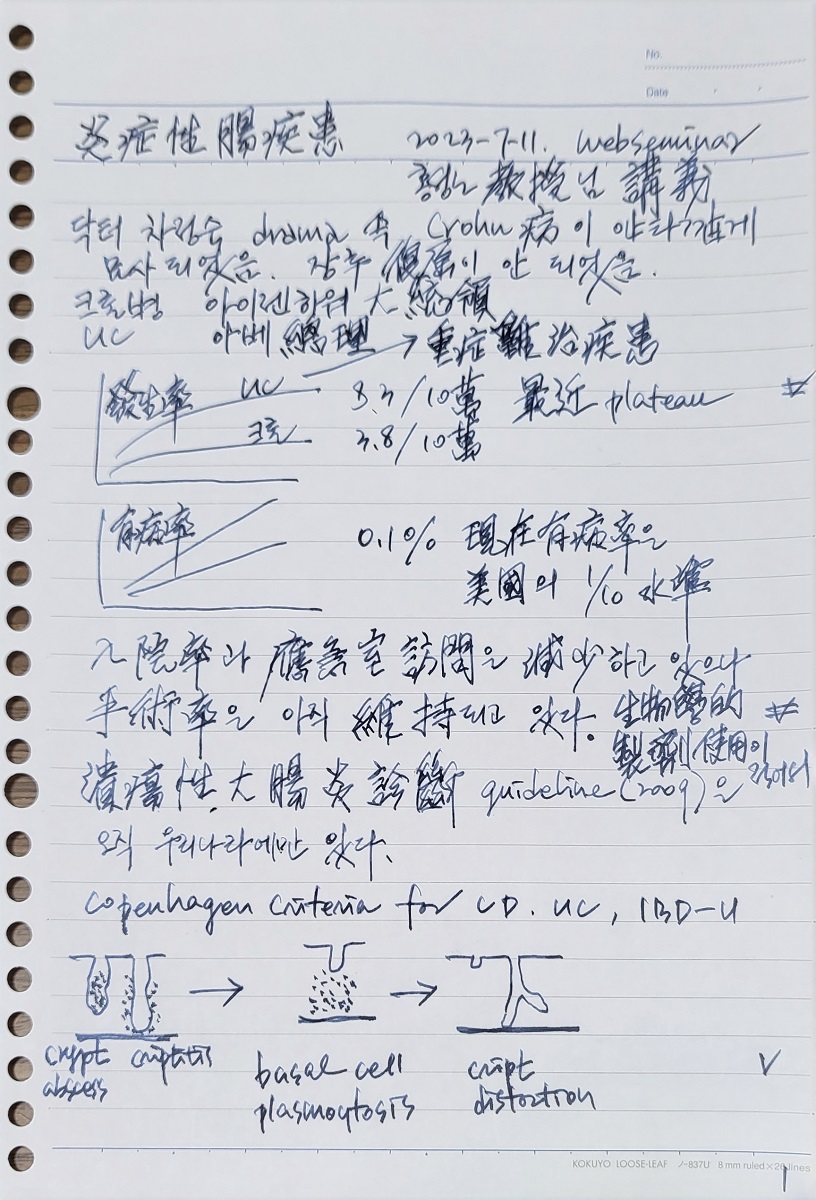 No.
Date
炎症性腸疾患 2023-7-11. webseminar
教授님 講義
닥터 차정숙 drama 속 Crohn病이
묘사 되었음. 장루 이 안 되었음.
크론병 아이젠하워 大統領
UC 아베 總理 → 重症難治疾患
發生率 UC /10萬 最近 plateau
크론 3.8/10萬
有病率 0.1% 現在有病率은
美國의 1/10 水準
入院率과 應急室 訪問은 減少하고 있으나
手術率은 아직 維持되고 있다. 生物學的
製劑 使用이
潰瘍性 大腸炎 診斷 guideline(2009)은
오직 우리나라에만 있다.
Copenhagen Criteria for CD. UC, IBD-U
crypt abscess
criptitis
basal cell plasmocytosis
cript distortion
V
KOKUYO LOOSE-LEAF ノ-837U 8 mm ruled×26 lines
1